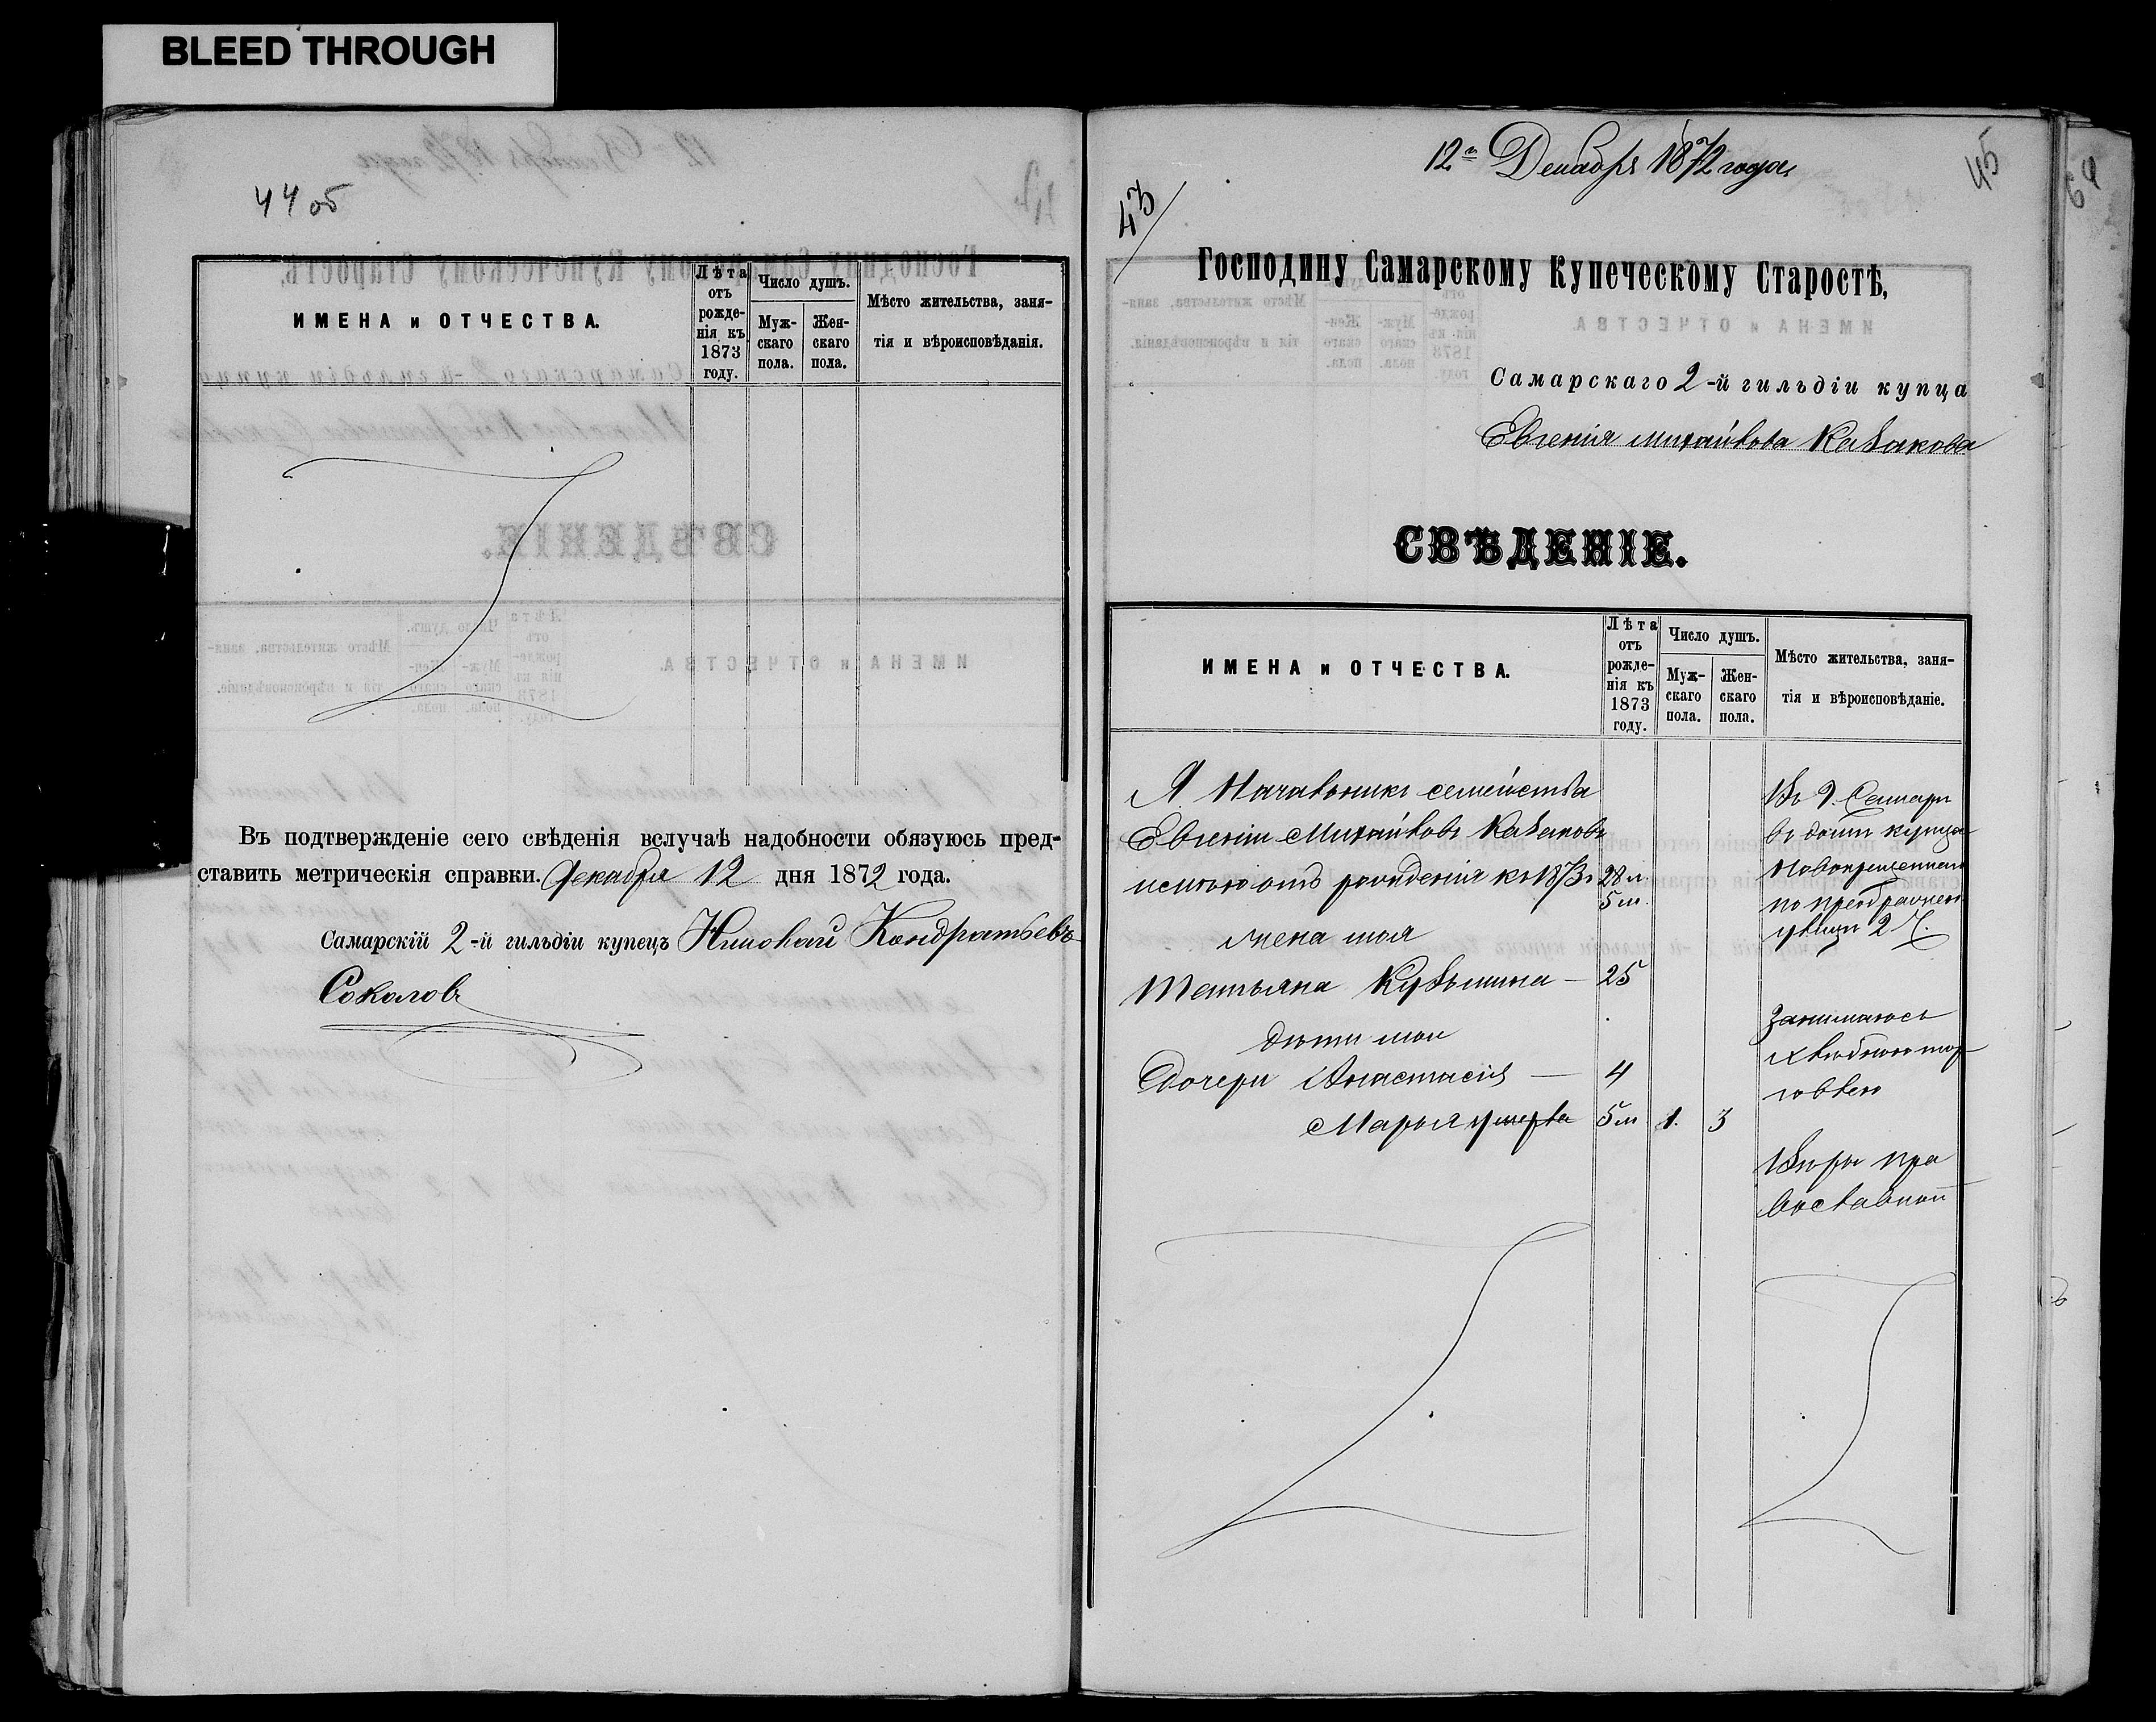 BLEED THROUGH
44 об
ИМЕНА и ОТЧЕСТВА.
Лѣта
отъ
рожде-
нія къ
1873
году.
Число душъ.
Муж-
скаго
пола.
Жен-
скаго
пола.
Мѣсто жительства, заня-
тія и вѣроисповѣданія.
Въ подтвержденіе сего свѣденія вслучаѣ надобности обязуюсь пред-
ставить метрическія справки. Декабря 12 дня 1872 года.
Самарскій 2-й гильдіи купецъ Николай Кондратьевъ
Соколовъ
12го Декабря 1872 года
45
43
69
Господину Самарскому Купеческому Старостѣ,
Самарскаго 2-й гильдіи купца
Евгенія Михайлова Казакова
СВѢДЕНІЕ.
ИМЕНА и ОТЧЕСТВА.
Лѣта
отъ
рожде-
нія къ
1873
году.
Число душъ.
Муж-
скаго
пола.
Жен-
скаго
пола.
Мѣсто жительства, заня-
тія и вѣроисповѣданіе.
Я Начальникъ семейства
Евгеній Михайловъ Казаковъ
имѣю отъ рожденія къ 1873 г 28 л.
5 м.
жена моя
Татьяна Кузьмина — 25
дѣти мои
дочери Анастасія — 4
Марья умерла 5 м 1. 3
Въ г. Самарѣ
въ домѣ купца
Новокрещенова
по преображен.
улицѣ 2 Ч.
Занимаюсь
хлѣбною тор-
говлею
Вѣры пра
вославной